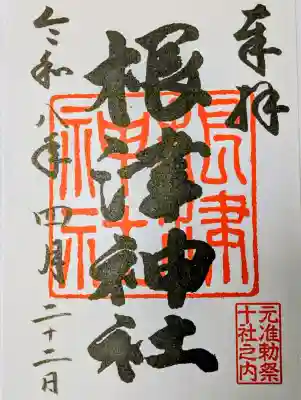 奉拝
根津神社
根津
神社
元准勅祭
十社之内
令和八年四月二十二日